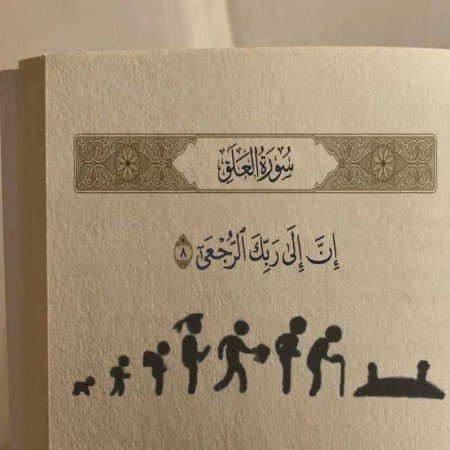 سُورَةُ الْعَلَقِ
إِنَّ إِلَىٰ رَبِّكَ ٱلرُّجْعَىٰٓ ٨